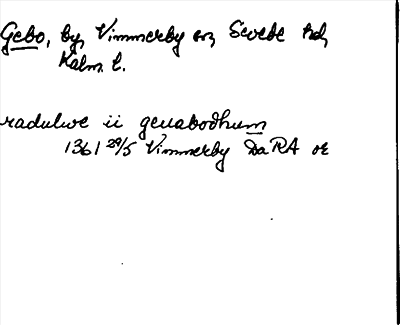 Gebo, by, Vimmerby sn, Sevede hd,
Kalm. l.
radulwe ii geuabodhum
1361 29/5 Vimmerby DaRA or